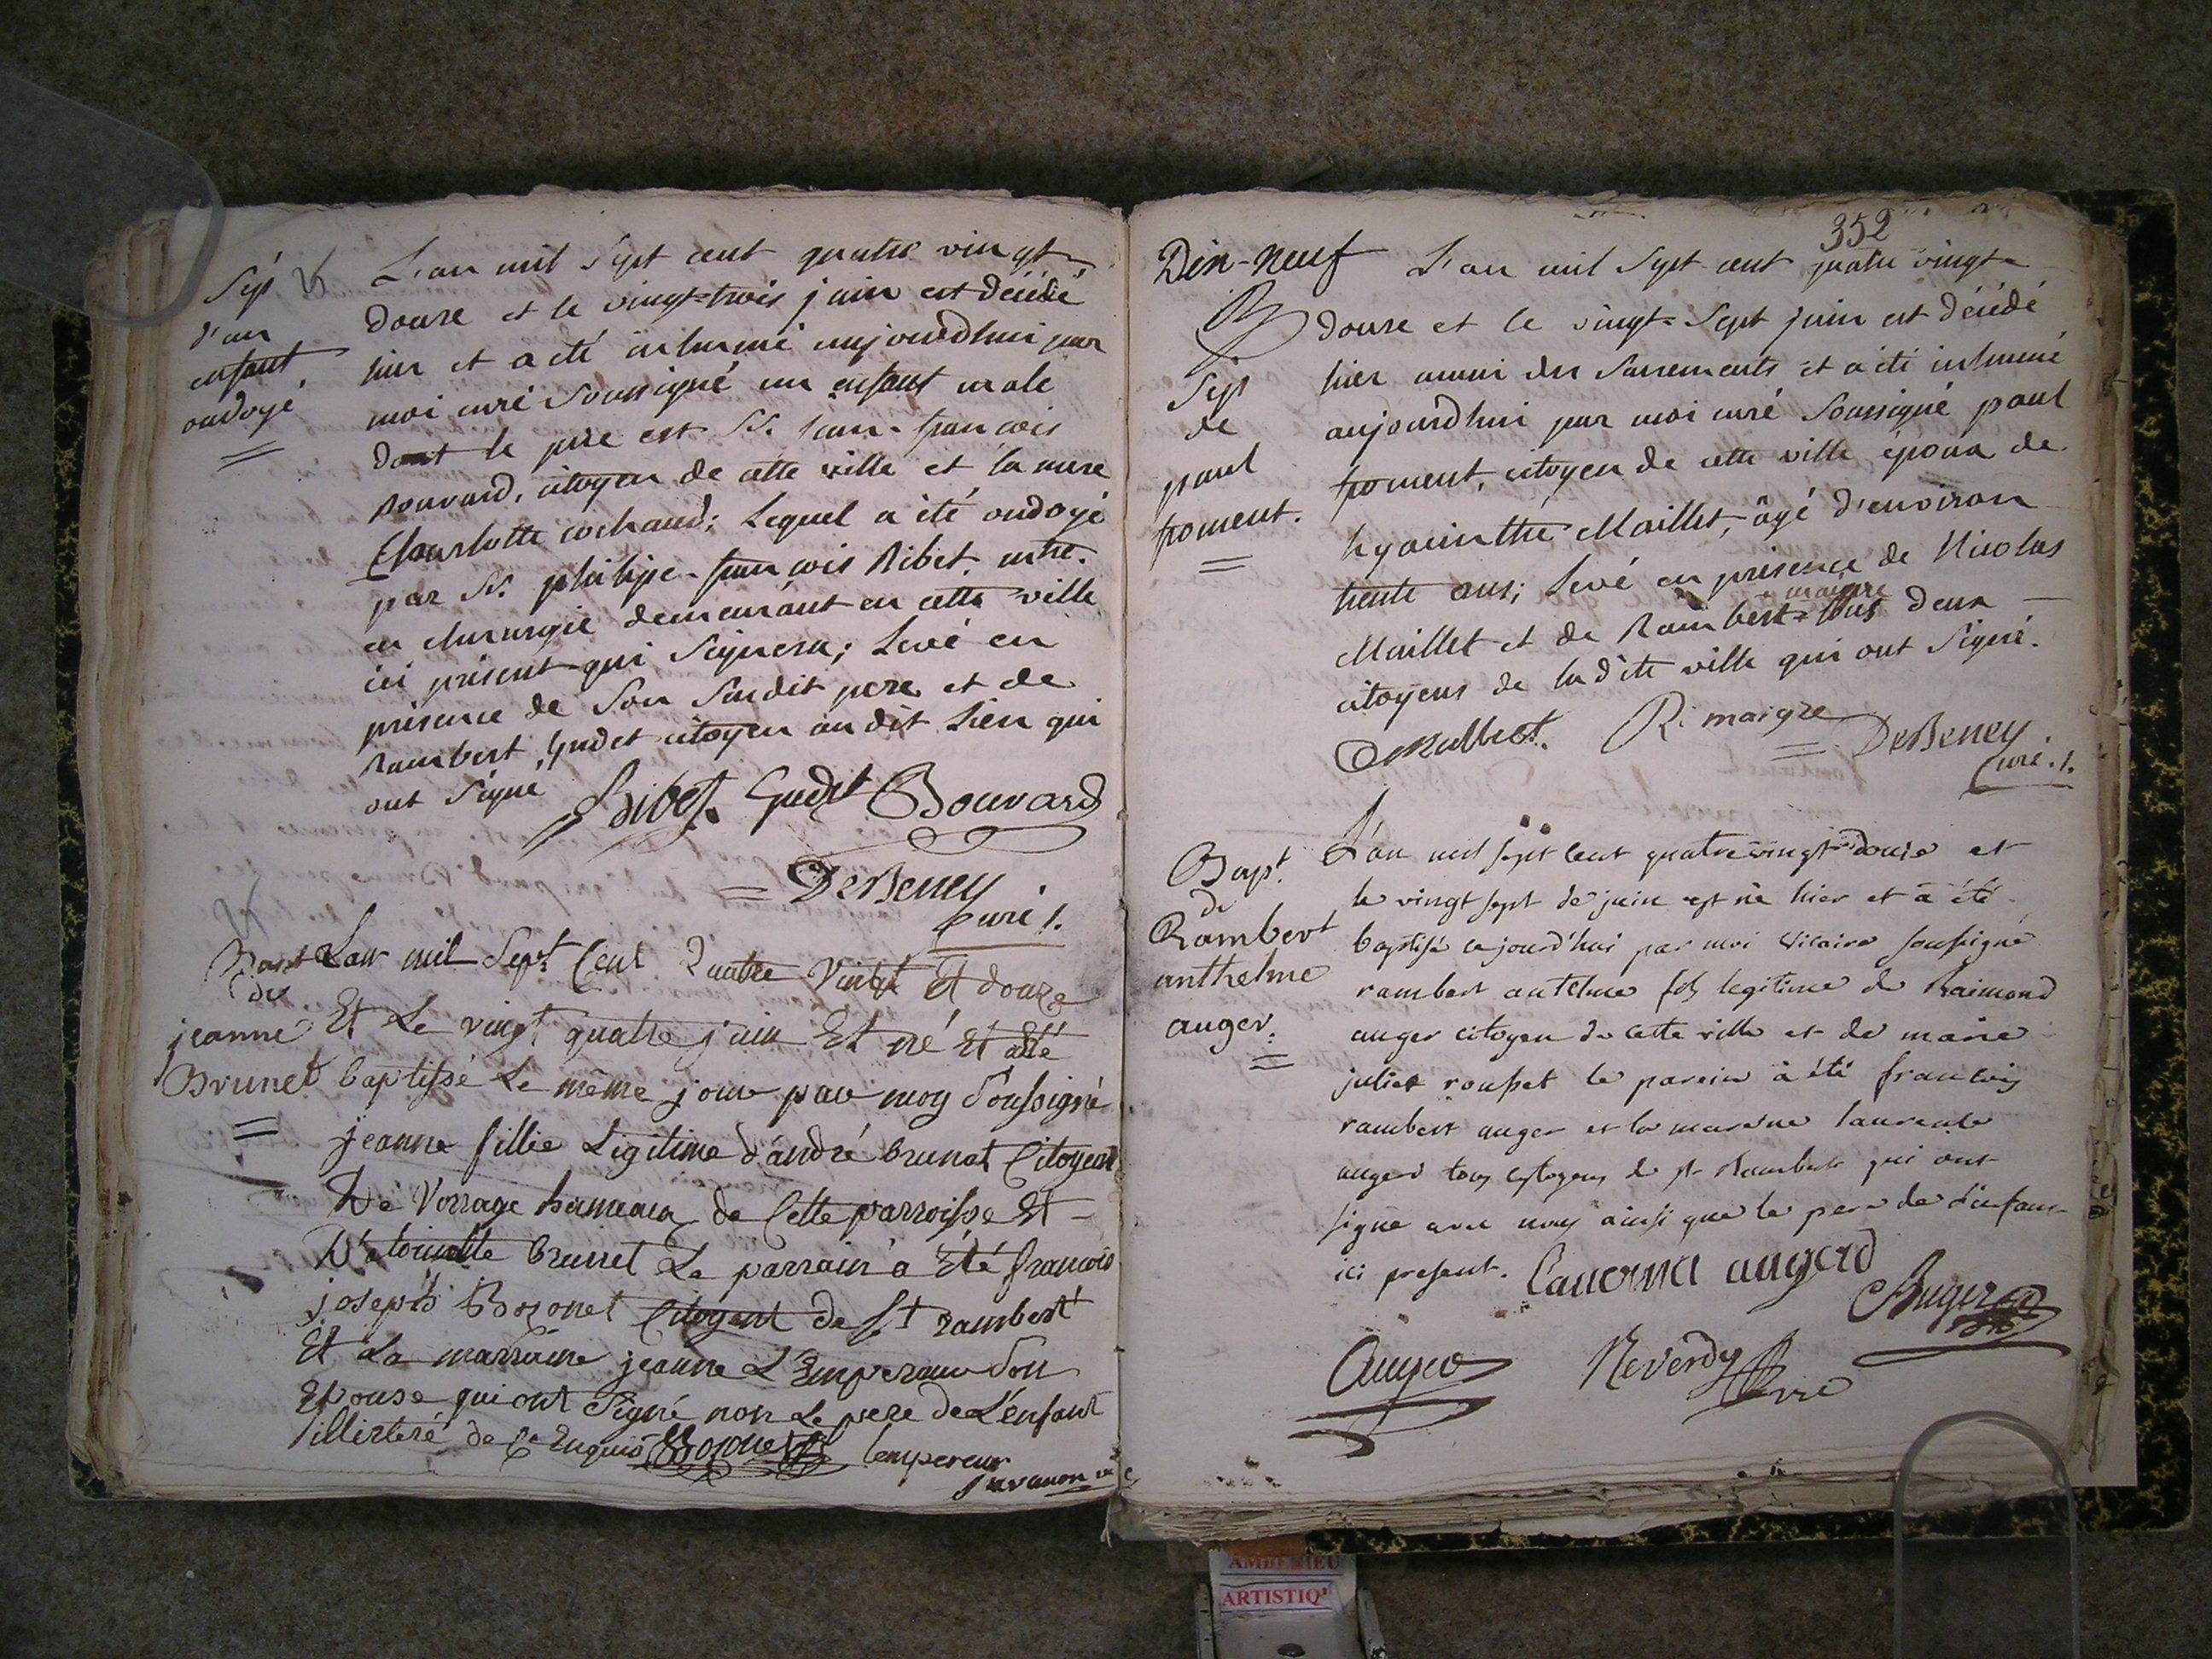 Sép
d'un
enfant
ondoyé.
L'an mil sept cent quatre vingt
douze et le vingt-trois juin est décédé
hier et a été inhumé aujourdhui par
moi curé soussigné un enfant male
dont le pere est Sr. jean-francois
Bouvard, citoyen de cette ville et la mere
Charlotte cochaud; Lequel a été ondoyé
par Sr. philipe-francois Ribet mtre.
en chirurgie demeurant en cette ville
ici présent qui signera; Levé en
présence de Son Susdit pere et de
Rambert Gudet citoyen au dit lieu qui
ont Signé
Ribet. Gudet Bouvard
= DeBeney
Curé.
Bapt
de
jeanne
Brunet
Lan mil Sept Cent Quatre Vingt Et douze
Et Le vingt quatre juin Et né Et atté
baptissé Le même jour par moy Soussigné
jeanne fillie Legitime d'andré brunet Citoyent
De Vorrage hameaux de Cette parroisse Et
D'atoinette brunet Le parrain a Eté francois
joseph Bozonet Citoyent de St rambert
Et La marraine jeanne L'Empereur Son
Epouse qui ont Signé non Le pere de L'enfant
illiteré de Ce Enquis Bozonet lempereur
Savanon
352
Dix-neuf
Sép
de
paul
froment.
L'an mil sept cent quatre vingt
douze et le vingt-sept juin est décédé
hier muni des sacrements et a été inhumé
aujourdhui par moi curé soussigné paul
froment, citoyen de cette ville époux de
hyacinthe Maillet, âgé d'environ
trente ans; Levé en présence de Nicolas
maigre
Maillet et de Rambert tous deux
citoyens de ladite ville qui ont signé.
R. maigre
= DeBeney
Curé.
Bapt.
de
Rambert
anthelme
auger.
L'an mil sept cent quatre vingt douze et
le vingt sept de juin est né hier et a été
baptisé cejourd'hui par moi vicaire soussigné
rambert antelme fils legitime de Raimond
auger citoyen de cette ville et de marie
juliet rousset le parein à été francois
rambert auger et la mareine laurence
auger tous citoyens de st Rambert qui ont
signé avec nous ainsi que le pere de l'enfant
ici present. Laurence auger
Auger
Auger
Reverdy vre
AMBERIEU
ARTISTIQ'